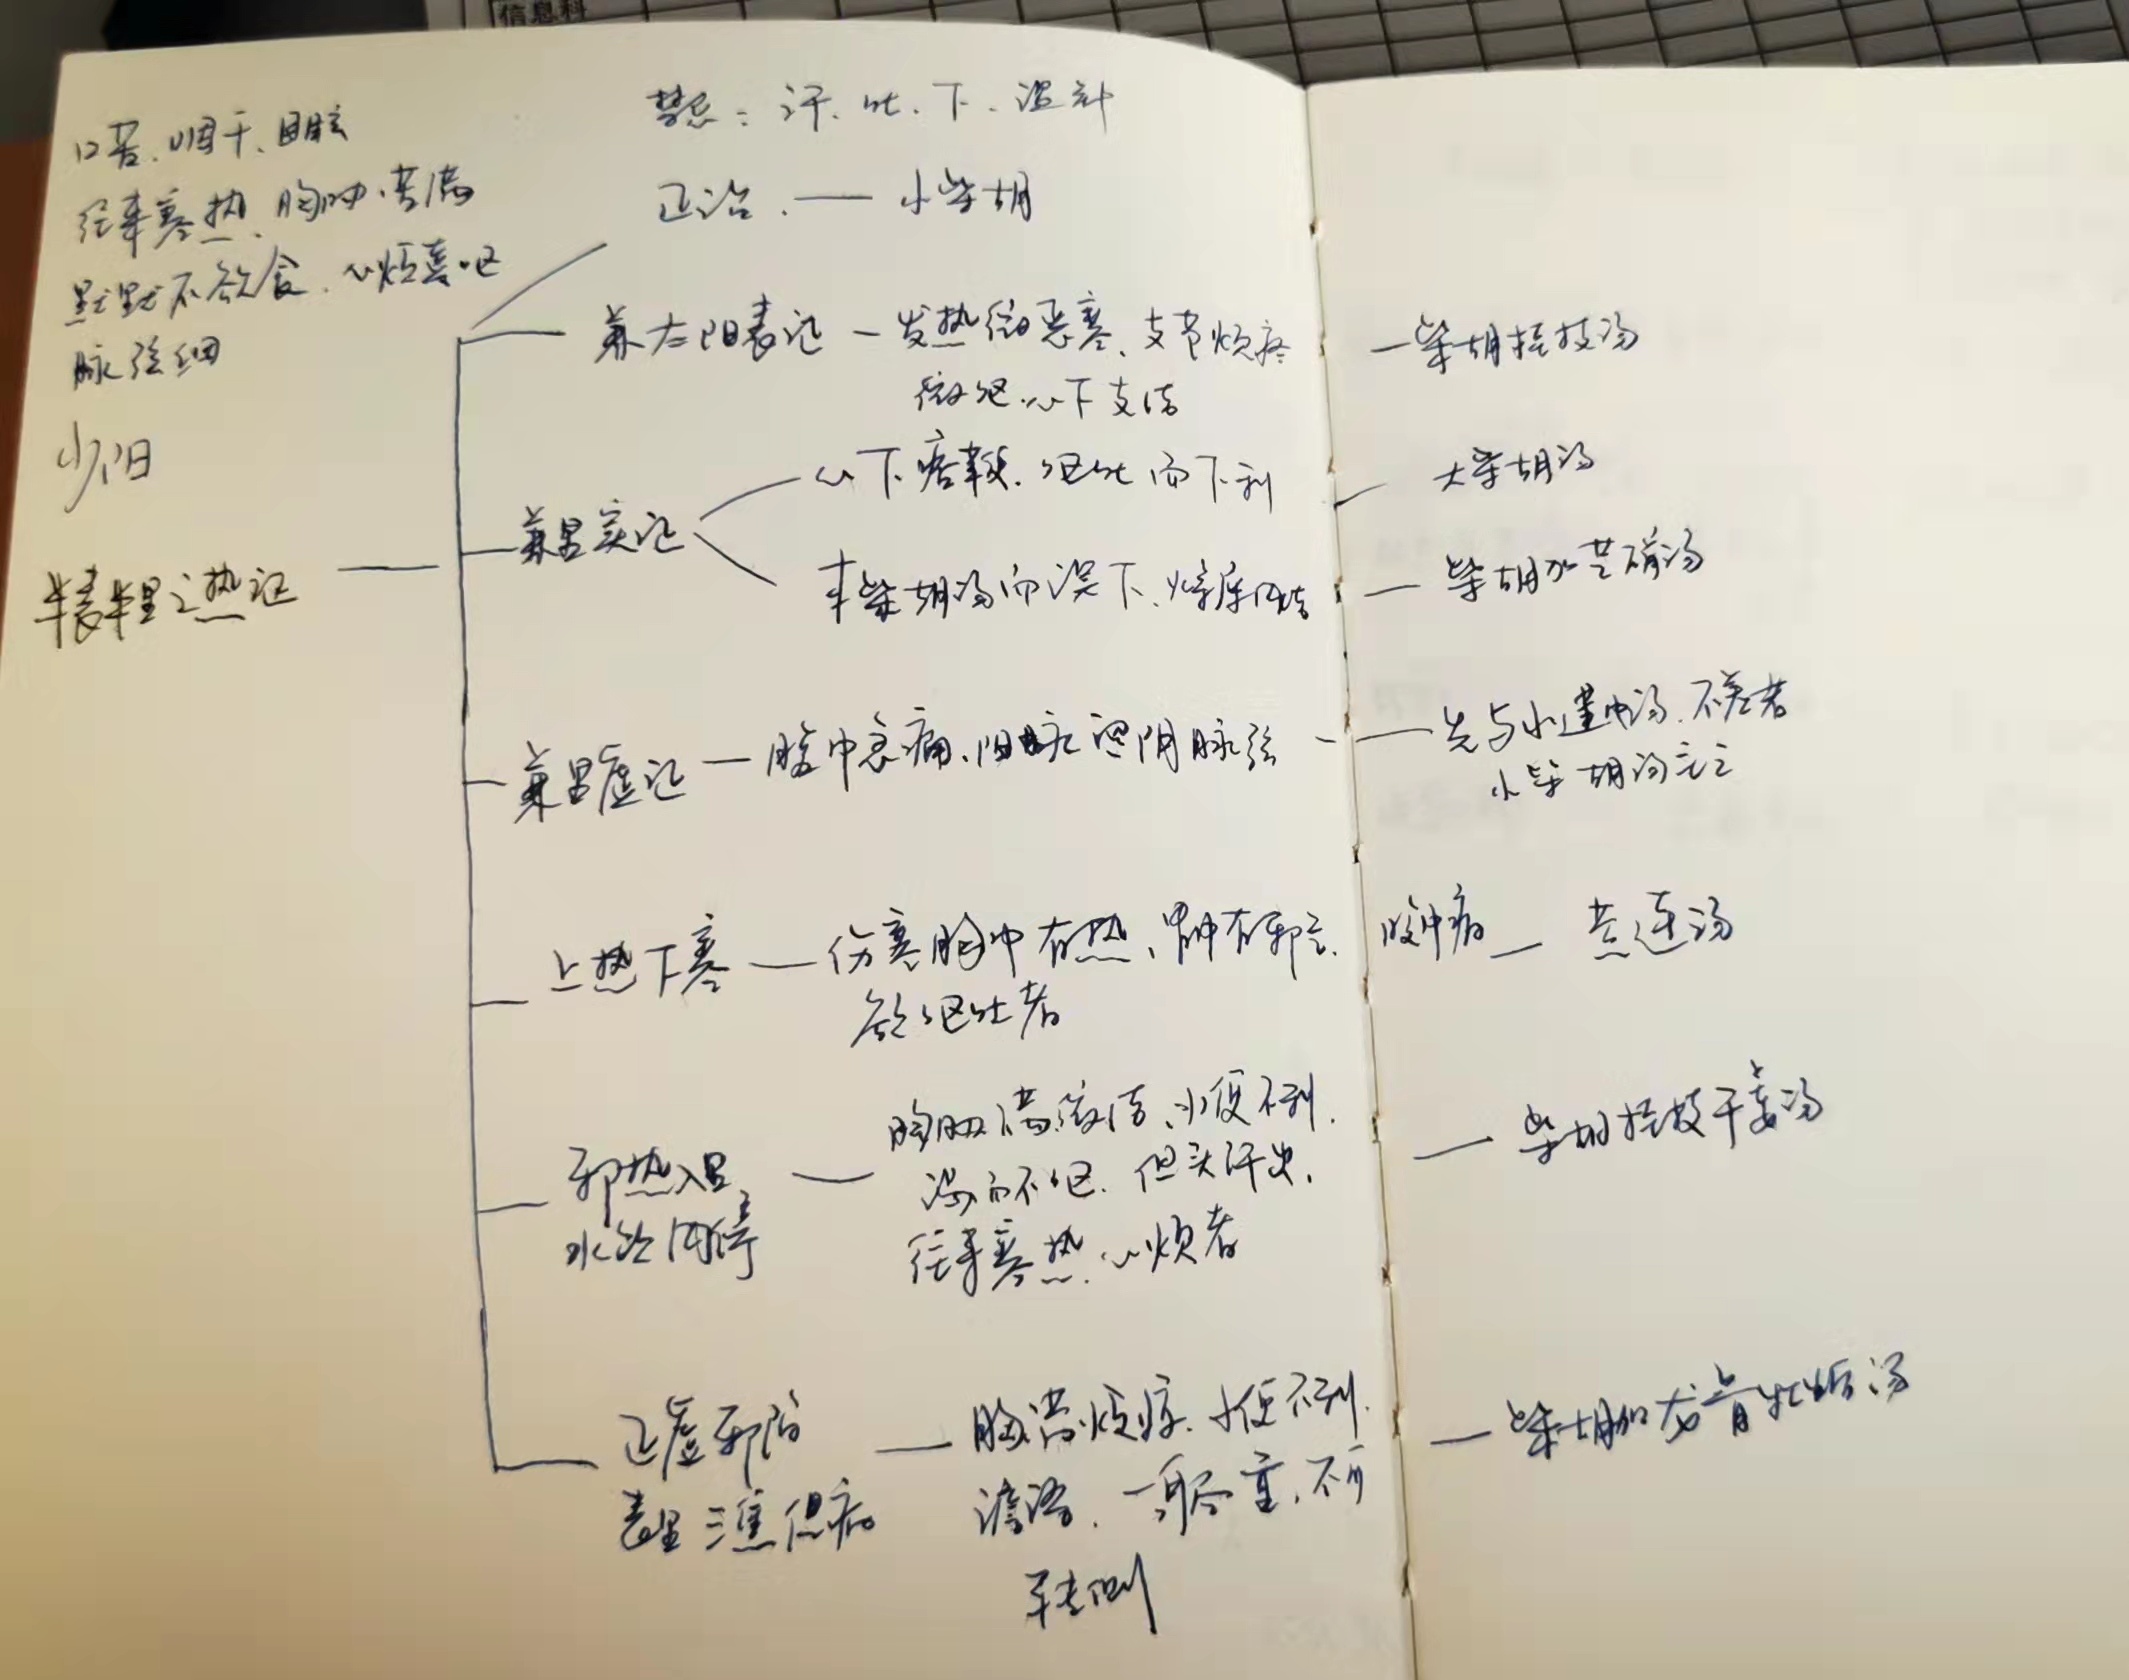 信息科
口苦、咽干、目眩
往来寒热、胸胁苦满
默默不欲饮食、心烦喜呕
脉弦细
少阳
半表半里之热证
禁忌：汗、吐、下、温针
正治、—— 小柴胡
兼太阳表证 — 发热微恶寒、支节烦疼 — 柴胡桂枝汤
微呕、心下支结
兼里实证
心下痞鞕、呕吐而下利 — 大柴胡汤
柴胡汤而误下、燥屎内结 — 柴胡加芒硝汤
兼里虚证 — 腹中急痛、阳脉涩阴脉弦 — 先与小建中汤、不差者
小柴胡汤主之
上热下寒 — 伤寒胸中有热、胃中有邪气、腹中痛 — 黄连汤
欲呕吐者
邪热入里
水饮内停
胸胁满微结、小便不利、 — 柴胡桂枝干姜汤
渴而不呕、但头汗出、
往来寒热、心烦者
正虚邪陷
表里三焦俱病
胸满烦惊、小便不利、 — 柴胡加龙骨牡蛎汤
谵语、一身尽重、不可
转侧